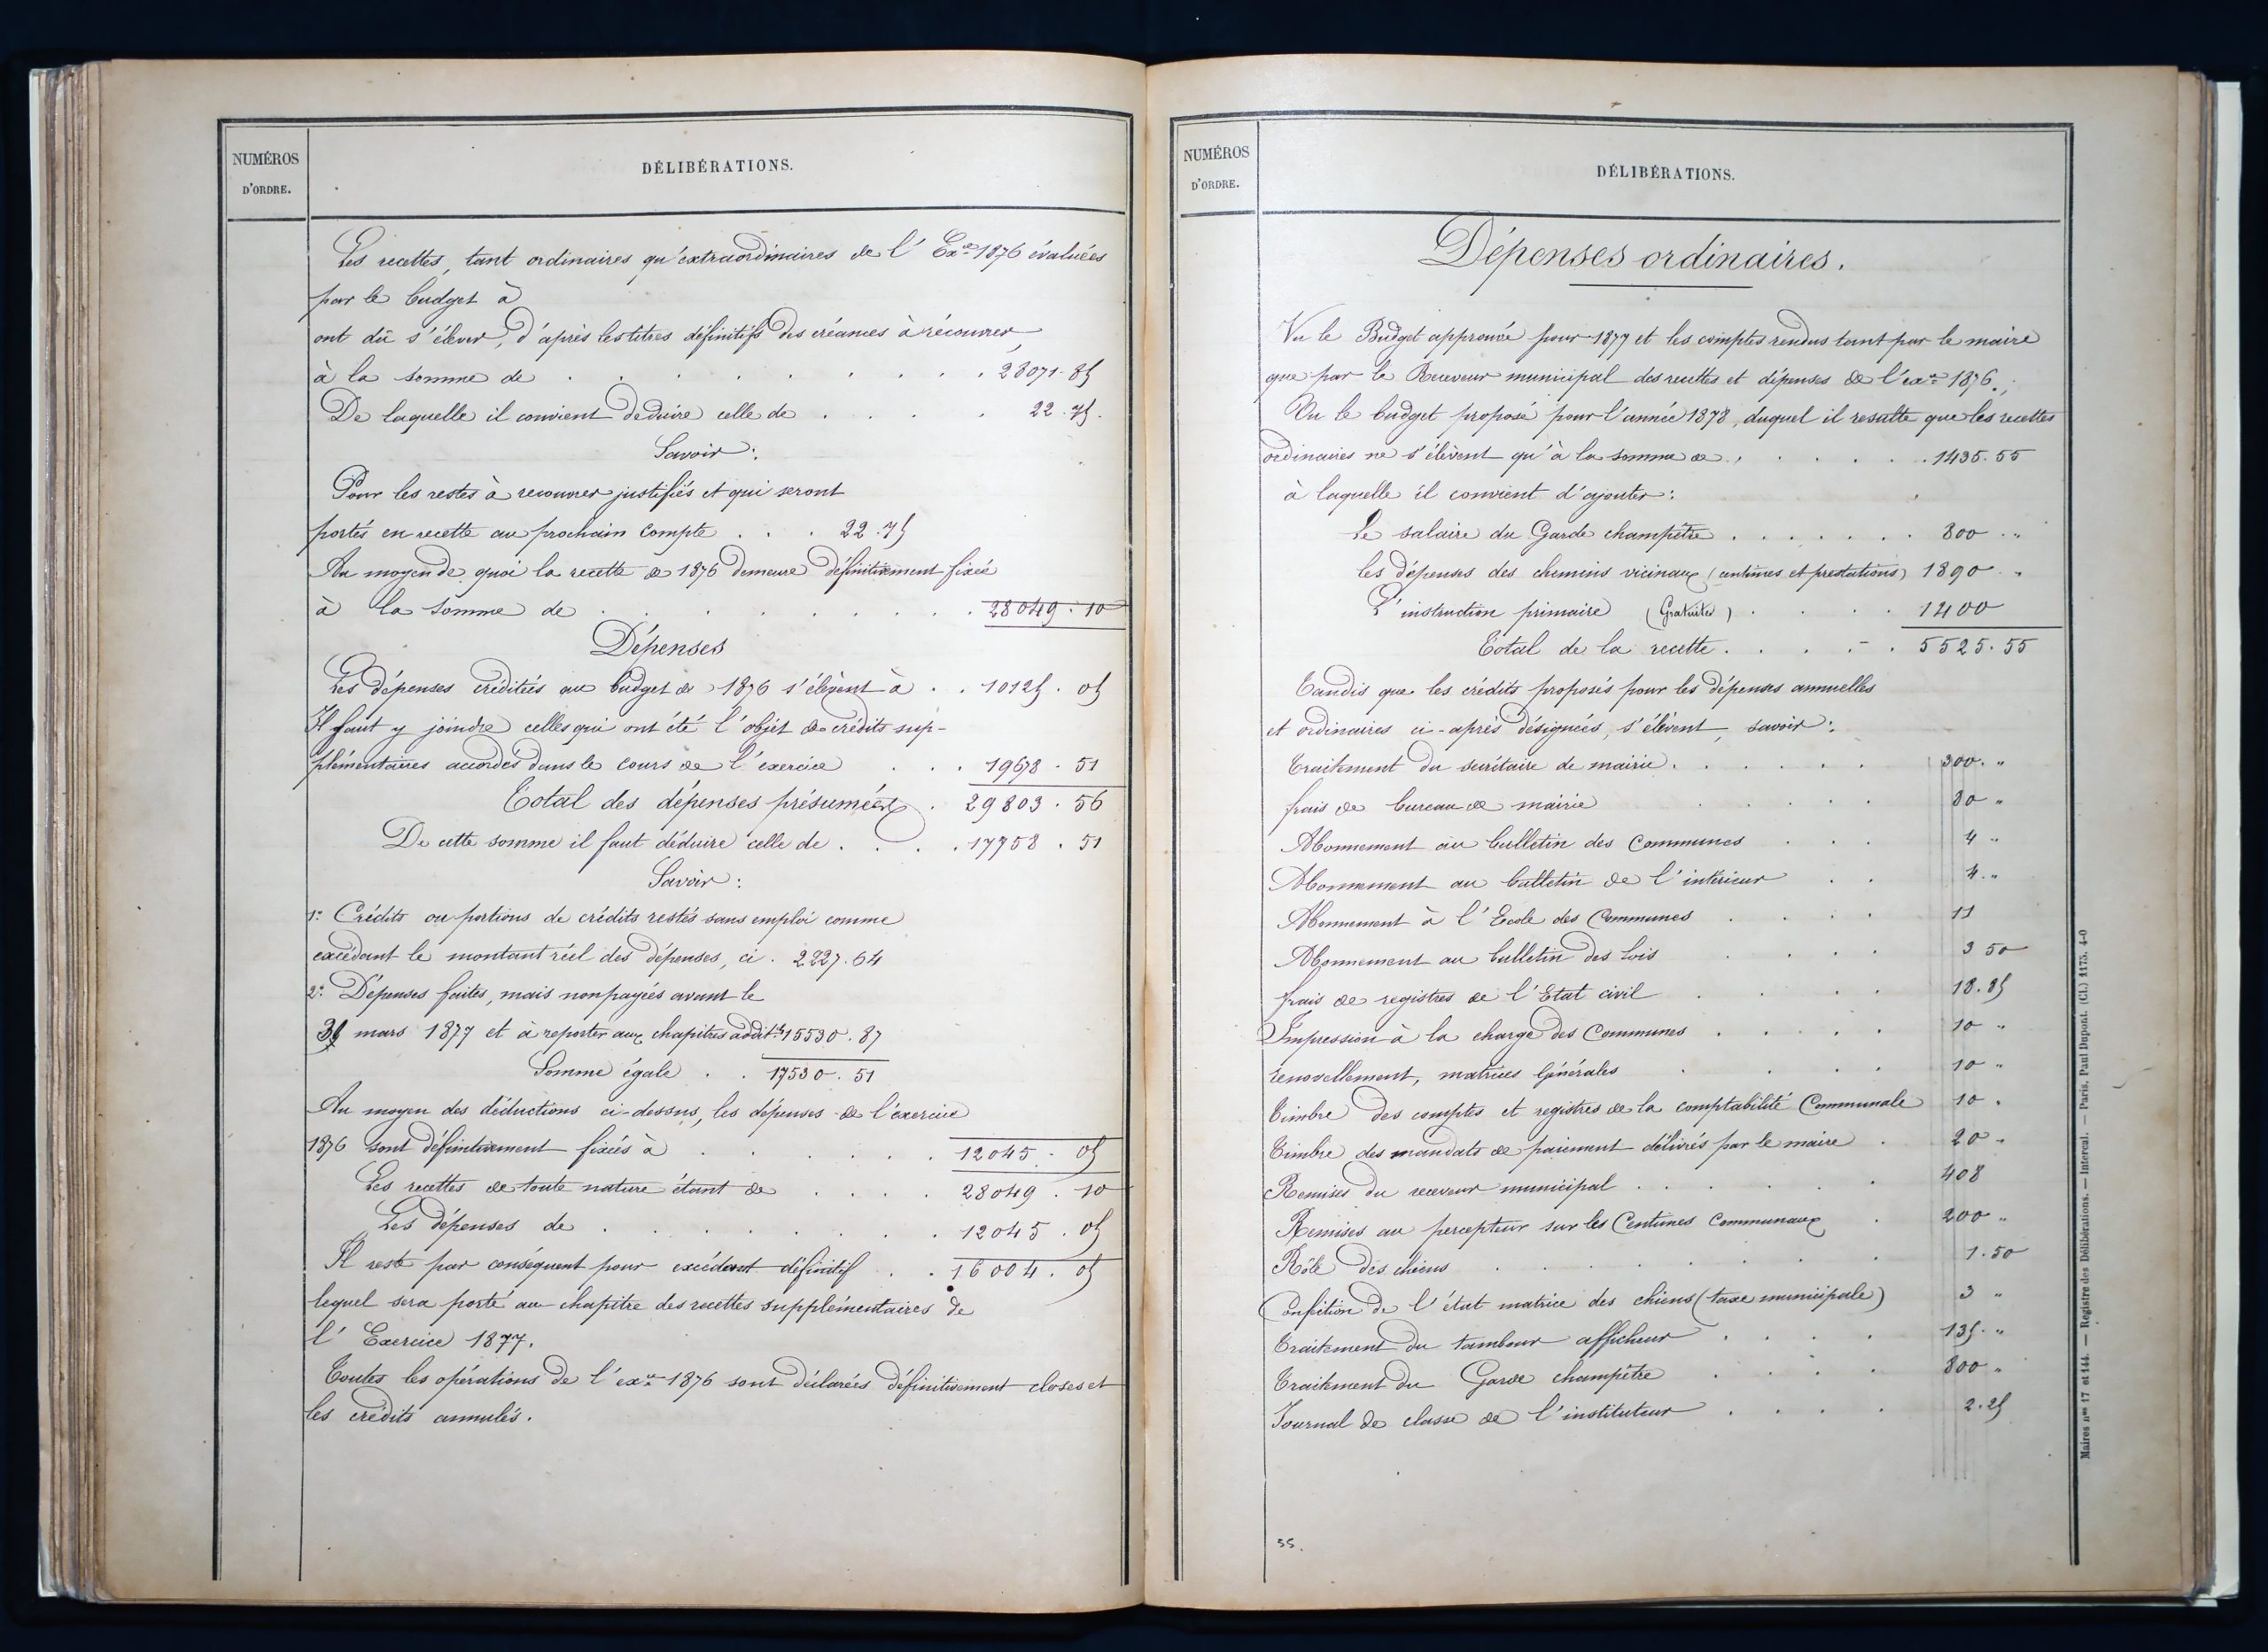 NUMÉROS
D'ORDRE.
DÉLIBÉRATIONS.
Les recettes, tant ordinaires qu'extraordinaires de l'Exce 1876 évaluées
par le budget à
ont dû s'élever, d'après les titres définitifs des créances à récouvrer,
à la somme de . . . . . . . . . 28071.85
De laquelle il convient deduire celle de . . . . 22.75.
Savoir:
Pour les restes à recouvrer justifiés et qui seront
portés en recette au prochain compte . . . 22.75
Au moyen de quoi la recette de 1876 demeure définitivement fixée
à la somme de . . . . . . . . 28049.10
Dépenses
Les dépenses créditées au budget de 1876 s'élèvent à . . 10125.05
Il faut y joindre celles qui ont été l'objet de crédits sup-
plémentaires accordés dans le cours de l'exercice . . . 19678.51
Total des dépenses présumées . 29803.56
De cette somme il faut déduire celle de . . . . 17758.51
Savoir:
1º Crédits ou portions de crédits restés sans emploi comme
excédant le montant réel des dépenses, ci . 2227.64
2º Dépenses faites, mais non payées avant le
31 mars 1877 et à reporter aux chapitres addit.ls 15530.87
Somme égale . . 17530.51
Au moyen des déductions ci-dessus, les dépenses de l'exercice
1876 sont définitivement fixées à . . . . . . 12045.05
Les recettes de toute nature étant de . . . . 28049.10
Les dépenses de . . . . . . . 12045.05
Il reste par conséquent pour excédent définitif . . 16004.05
lequel sera porté au chapitre des recettes supplémentaires de
l'Exercice 1877.
Toutes les opérations de l'exce 1876 sont déclarées définitivement closes et
les crédits annulés.
NUMÉROS
D'ORDRE.
DÉLIBÉRATIONS.
Dépenses ordinaires.
Vu le Budget approuvé pour 1877 et les comptes rendus tant par le maire
que par le Receveur municipal des recettes et dépenses de l'exce 1876.;
Vu le budget proposé pour l'année 1878, duquel il resulte que les recettes
ordinaires ne s'élèvent qu'à la somme de . . . . . . 1435.55
à laquelle il convient d'ajouter:
Le salaire du Garde champêtre . . . . . . . 800 . "
les dépenses des chemins vicinaux (centimes et prestations) 1890 . "
L'instruction primaire (Gratuité) . . . . 1400
Total de la recette . . . . . 5525.55
Tandis que les crédits proposés pour les dépenses annuelles
et ordinaires ci-après désignées, s'élèvent, savoir:
Traitement du secrétaire de mairie . . . . . . 300. "
frais de bureau de mairie . . . . . 80 "
Abonnement au bulletin des Communes . . . 4 "
Abonnement au bulletin de l'intérieur . . 4. "
Abonnement à l'Ecole des Communes . . . . 11
Abonnement au bulletin des Lois . . . . 3 50
frais de registres de l'Etat civil . . . . 18.85
Impression à la charge des Communes . . . . . 10 "
renovellement, matrices Générales . . . . 10 "
Timbre des comptes et registres de la comptabilité Communale 10 .
Timbre des mandats de paiement délivrés par le maire . 20 -
Remises du receveur municipal . . . . . . 408
Remises au percepteur sur les Centimes Communaux . 200 "
Rôle des chiens . . . . . . . 1.50
Confection de l'état matrice des chiens (taxe municipale) 3 "
Traitement du tambour afficheur . . . . 135. "
Traitement du Garde champêtre . . . . 800 "
Journal de classe de l'instituteur . . . . 2.25
55.
Maires nos 17 et 144. — Registre des Délibérations. — Intercal. — Paris, Paul Dupont. (Cl.) 1175. 4-0